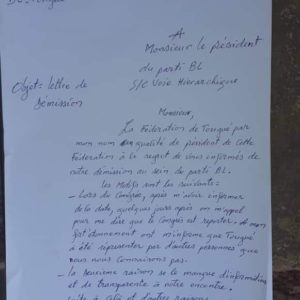 De Tougué
A
Monsieur le président
du parti BL
S/C Voie Hierarchique
Objet: lettre de
démission
Monsieur,
La Fédération de Tougué par
mon nom en qualité de président de cette
Fédération à le regret de vous informés de
notre démission au sein de parti BL.
les Motifs sont les suivants:
- Lors du Congrès, après m'avoir informer
de la date, quelques jours après on m'appel
pour me dire que le Congrès est reporter. A mon
fort étonnement ont m'informe que Tougué
à été représenter par d'autres personnes que
nous nous connaissons pas.
- la deuxième raison se le manque d'information
et de transparente à notre encontre.
suite à cela et d'autres raisons